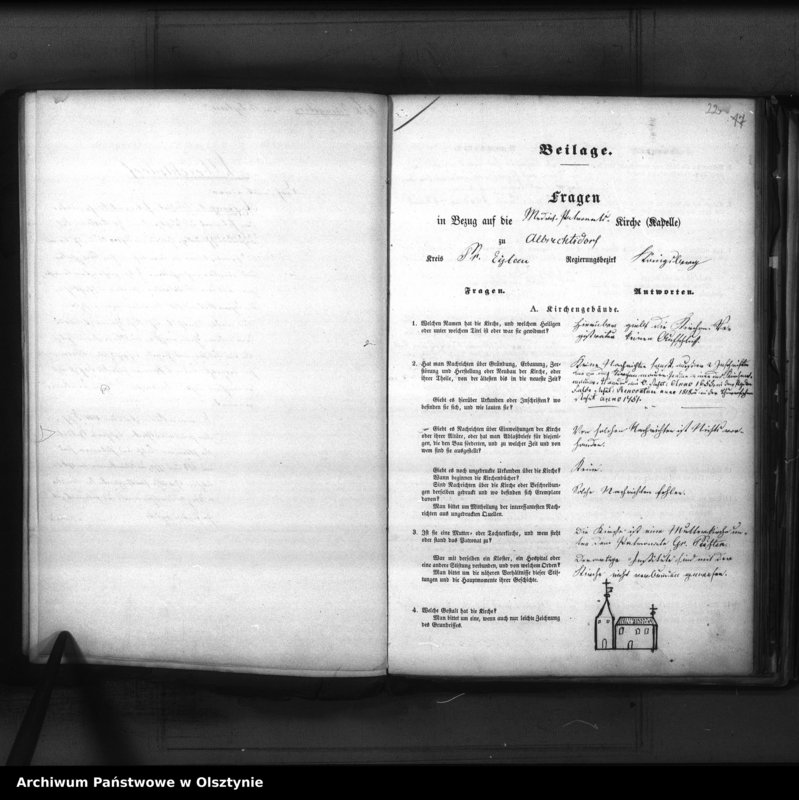 22.
17
Beilage.
Fragen
in Bezug auf die Kirche (Kapelle)
zu Albrechtsdorf
Kreis Pr. Eylau Regierungsbezirk Königsberg
Fragen. Antworten.
A. Kirchengebäude.
1. Welchen Namen hat die Kirche, und welchem Heiligen
oder unter welchem Titel ist oder war sie gewidmet?
Hierüber giebt die Kirchen-Re-
gistratur keinen Aufschluß
2. Hat man Nachrichten über Gründung, Erbauung, Zer-
störung und Herstellung oder Neubau der Kirche, oder
ihrer Theile, von der ältesten bis in die neueste Zeit?
Keine Nachrichten
Giebt es hierüber Urkunden oder Inschriften? wo
befinden sie sich, und wie lauten sie?
anno 1751.
Giebt es Nachrichten über Einweihungen der Kirche
oder ihrer Altäre, oder hat man Ablaßbriefe für diejeni-
gen, die den Bau förderten, und zu welcher Zeit und von
wem sind sie ausgestellt?
Von solchen Nachrichten ist Nichts vor-
handen.
Giebt es noch ungedruckte Urkunden über die Kirche?
Wann beginnen die Kirchenbücher?
Keine.
Sind Nachrichten über die Kirche oder Beschreibun-
gen derselben gedruckt und wo befinden sich Exemplare
davon?
Solche Nachrichten fehlen.
Man bittet um Mittheilung der interessantesten Nach-
richten aus ungedruckten Quellen.
3. Ist sie eine Mutter- oder Tochterkirche, und wem steht
oder stand das Patronat zu?
Die Kirche ist eine Mutterkirche un-
ter dem Patronate
War mit derselben ein Kloster, ein Hospital oder
eine andere Stiftung verbunden, und von welchem Orden?
Man bittet um die näheren Verhältnisse dieser Stif-
tungen und die Hauptmomente ihrer Geschichte.
Derartige Institute sind mit der
Kirche nicht verbunden gewesen.
4. Welche Gestalt hat die Kirche?
Man bittet um eine, wenn auch nur leichte Zeichnung
des Grundrisses.
Archiwum Państwowe w Olsztynie